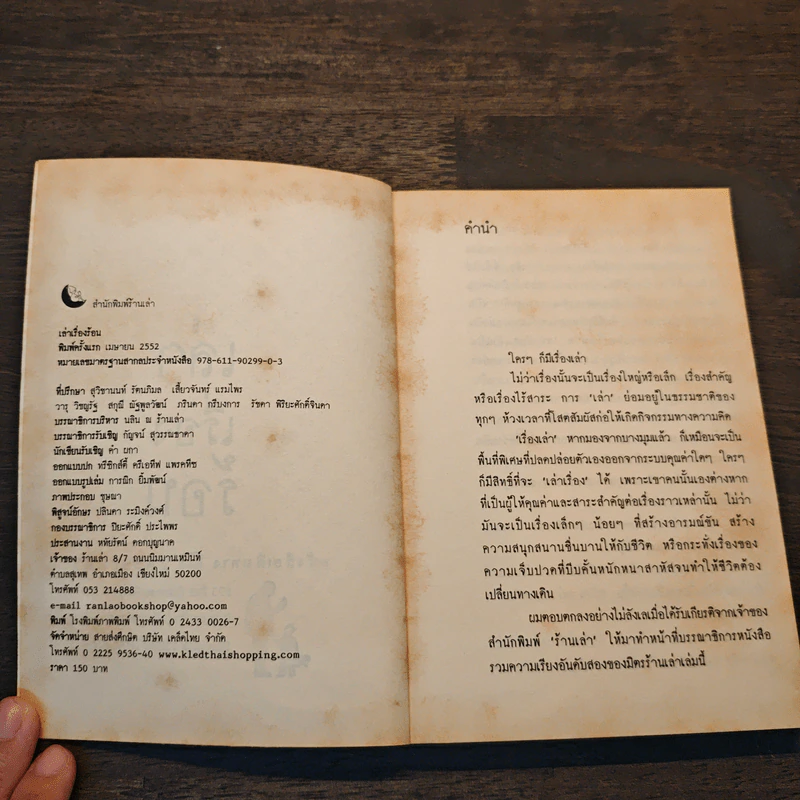 สำนักพิมพ์ร้านเล่า
เล่าเรื่องร้อน
พิมพ์ครั้งแรก เมษายน 2552
หมายเลขมาตรฐานสากลประจำหนังสือ 978-611-90299-0-3
ที่ปรึกษา สุวิชานนท์ รัตนภิมล เสี้ยวจันทร์ แรมไพร
วารุ วิชญรัฐ สกุณี ณัฐพูลวัฒน์ ภรินดา กรีบงการ รัชดา พิริยะศักดิ์จินดา
บรรณาธิการบริหาร นลิน ณ ร้านเล่า
บรรณาธิการรับเชิญ กัญจน์ สุวรรณชาดา
นักเขียนรับเชิญ คำ ผกา
ออกแบบปก ทรีซิกส์ตี้ ครีเอทีฟ แพรคทีซ
ออกแบบรูปเล่ม การณิก ยิ้มพัฒน์
ภาพประกอบ ชุษณา
พิสูจน์อักษร ปลินดา ระมิงค์วงศ์
กองบรรณาธิการ ปิยะศักดิ์ ประไพพร
ประสานงาน หทัยรัตน์ ดอกบุญนาค
เจ้าของ ร้านเล่า 8/7 ถนนนิมมานเหมินท์
ตำบลสุเทพ อำเภอเมือง เชียงใหม่ 50200
โทรศัพท์ 053 214888
e-mail ranlaobookshop@yahoo.com
พิมพ์ โรงพิมพ์ภาพพิมพ์ โทรศัพท์ 0 2433 0026-7
จัดจำหน่าย สายส่งศึกษิต บริษัท เคล็ดไทย จำกัด
โทรศัพท์ 0 2225 9536-40 www.kledthaishopping.com
ราคา 150 บาท
คำนำ
ใครๆ ก็มีเรื่องเล่า
ไม่ว่าเรื่องนั้นจะเป็นเรื่องใหญ่หรือเล็ก เรื่องสำคัญ
หรือเรื่องไร้สาระ การ 'เล่า' ย่อมอยู่ในธรรมชาติของ
ทุกๆ ห้วงเวลาที่โสตสัมผัสก่อให้เกิดกิจกรรมทางความคิด
'เรื่องเล่า' หากมองจากบางมุมแล้ว ก็เหมือนจะเป็น
พื้นที่พิเศษที่ปลดปล่อยตัวเองออกจากระบบคุณค่าใดๆ ใครๆ
ก็มีสิทธิ์ที่จะ 'เล่าเรื่อง' ได้ เพราะเขาคนนั้นเองต่างหาก
ที่เป็นผู้ให้คุณค่าและสาระสำคัญต่อเรื่องราวเหล่านั้น ไม่ว่า
มันจะเป็นเรื่องเล็กๆ น้อยๆ ที่สร้างอารมณ์ขัน สร้าง
ความสนุกสนานชื่นบานให้กับชีวิต หรือกระทั่งเรื่องของ
ความเจ็บปวดที่บีบคั้นหนักหนาสาหัสจนทำให้ชีวิตต้อง
เปลี่ยนทางเดิน
ผมตอบตกลงอย่างไม่ลังเลเมื่อได้รับเกียรติจากเจ้าของ
สำนักพิมพ์ 'ร้านเล่า' ให้มาทำหน้าที่บรรณาธิการหนังสือ
รวมความเรียงอันดับสองของมิตรร้านเล่าเล่มนี้